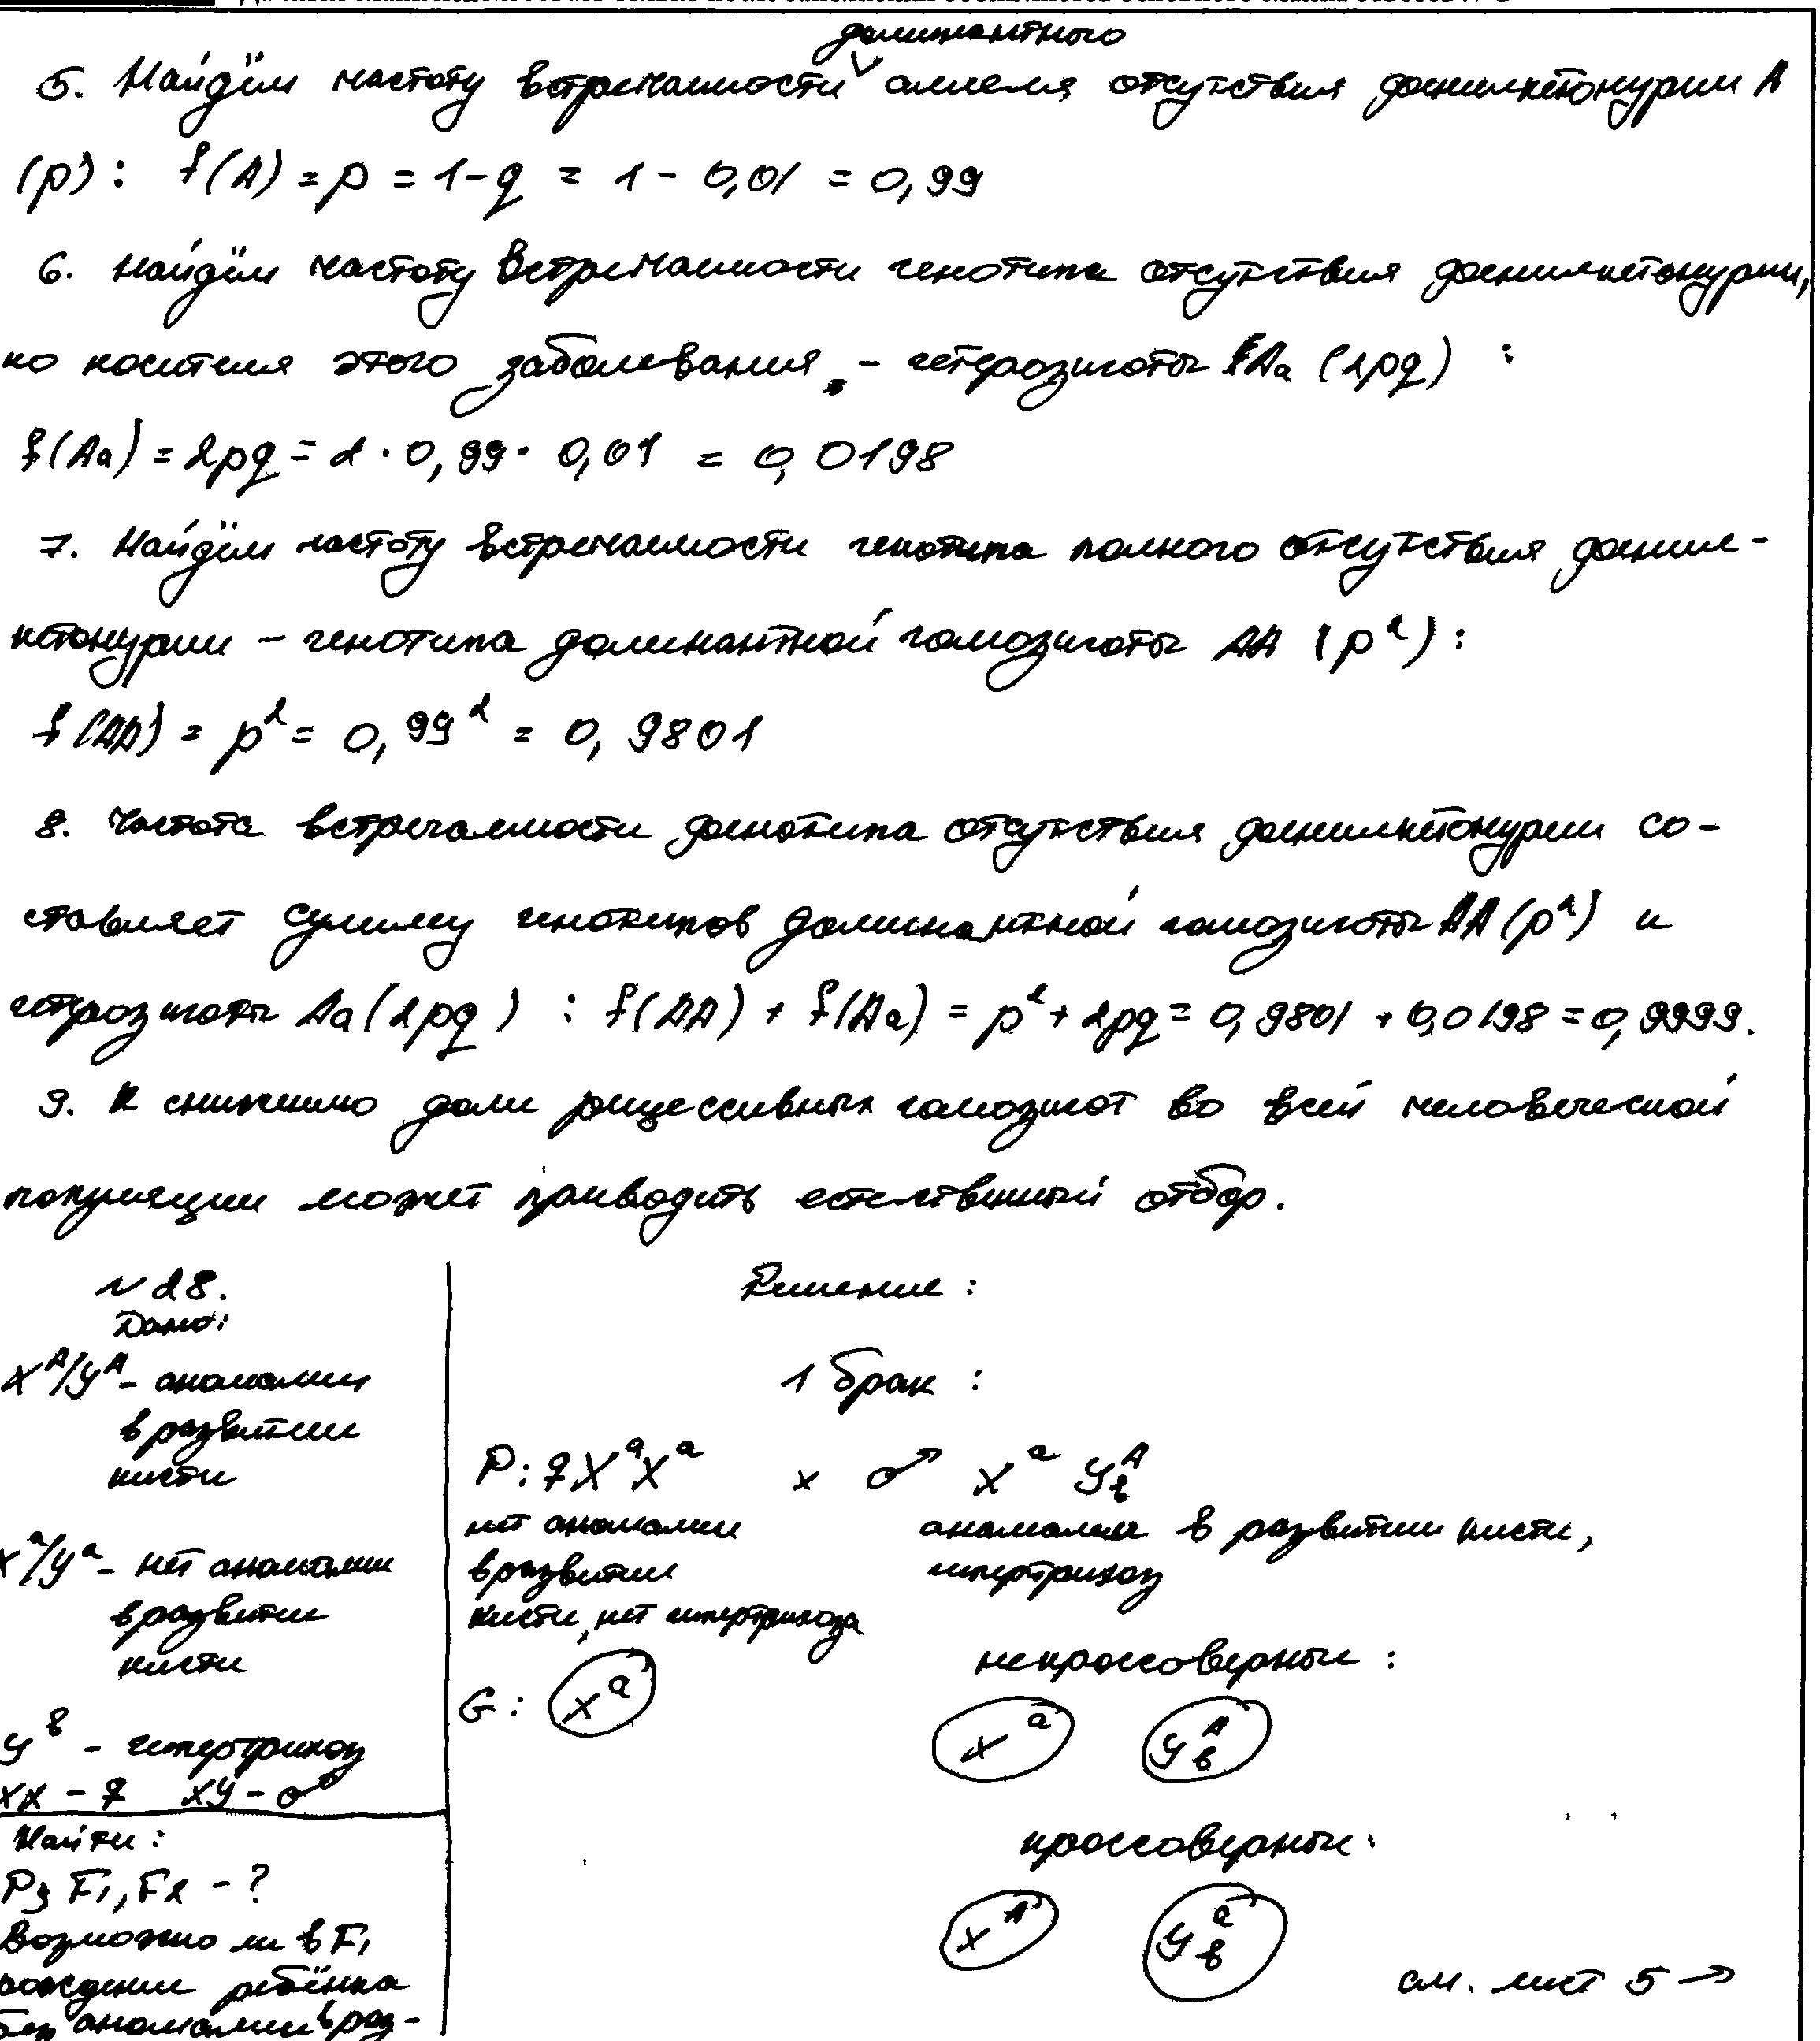 доминантного
5. Найдём частоту встречаемости аллеля отсутствия фенилкетонурии A
(p): f(A) = p = 1-q = 1 - 0,01 = 0,99
6. Найдём частоту встречаемости генотипа отсутствия фенилкетонурии,
но носителя этого заболевания - гетерозиготы Aa (2pq) :
f(Aa) = 2pq = 2 · 0,99 · 0,01 = 0,0198
7. Найдём частоту встречаемости генотипа полного отсутствия фенил-
кетонурии - генотипа доминантной гомозиготы AA (p²):
f(AA) = p² = 0,99² = 0,9801
8. Частота встречаемости фенотипа отсутствия фенилкетонурии со-
ставляет сумму генотипов доминантной гомозиготы AA (p²) и
гетерозиготы Aa (2pq) : f(AA) + f(Aa) = p² + 2pq = 0,9801 + 0,0198 = 0,9999.
9. К снижению доли рецессивных гомозигот во всей человеческой
популяции может приводить естественный отбор.
№28.
Дано:
X^A/Y^A - аномалии
в развитии
кисти
X^a/Y^a - нет аномалии
в развитии
кисти
Y^в - гипертрихоз
XX - ♀ XY - ♂
Найти:
P, F1, F2 - ?
Возможно ли в F1
рождение ребёнка
без аномалии в раз-
Решение:
1 брак:
P: ♀ X^a X^a x ♂ X^a Y^A_в
нет аномалии
в развитии
кисти, нет гипертрихоза
аномалии в развитии кисти,
гипертрихоз
G: X^a
некроссоверные:
X^a Y^A_в
кроссоверные:
X^A Y^a_в
см. лист 5 →